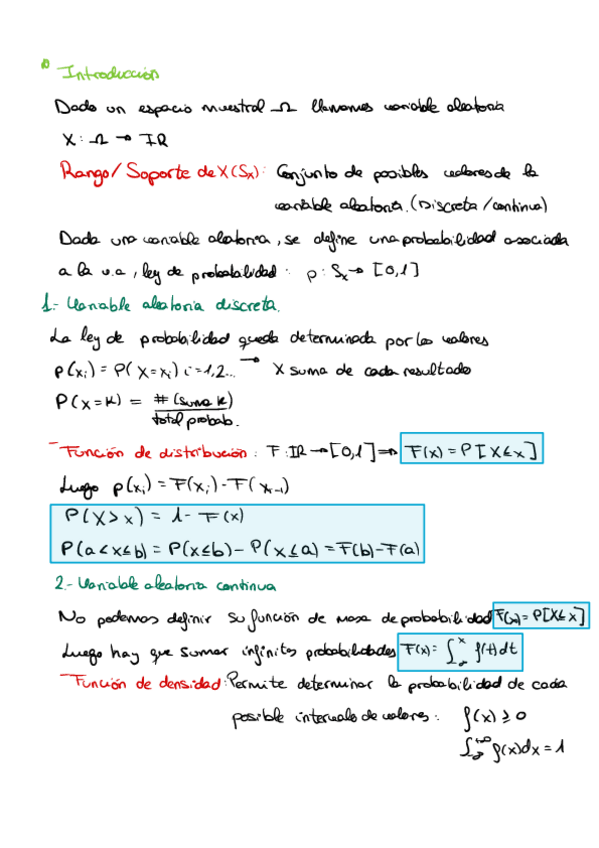 Introducción
Dado un espacio muestral Ω llamamos variable aleatoria
X: Ω → IR
Rango/Soporte de X (Sx): Conjunto de posibles valores de la
variable aleatoria. (Discreta/continua)
Dada una variable aleatoria, se define una probabilidad asociada
a la v.a, ley de probabilidad: p: Sx → [0,1]
1.- Variable aleatoria discreta.
La ley de probabilidad queda determinada por los valores
p(xi) = P(X=xi) i=1,2... → X suma de cada resultado
P(X=K) = #(suma K) / total probab.
- Función de distribución: F: IR → [0,1] ⇒ F(x) = P[X≤x]
Luego p(xi) = F(xi) - F(xi-1)
P(X>x) = 1 - F(x)
P(a<x≤b) = P(x≤b) - P(x≤a) = F(b) - F(a)
2.- Variable aleatoria continua
No podemos definir su función de masa de probabilidad F(x) = P[X≤x]
Luego hay que sumar infinitas probabilidades F(x) = ∫_{-∞}^{x} f(t)dt
- Función de densidad: Permite determinar la probabilidad de cada
posible intervalo de valores: f(x) ≥ 0
∫_{-∞}^{+∞} f(x)dx = 1